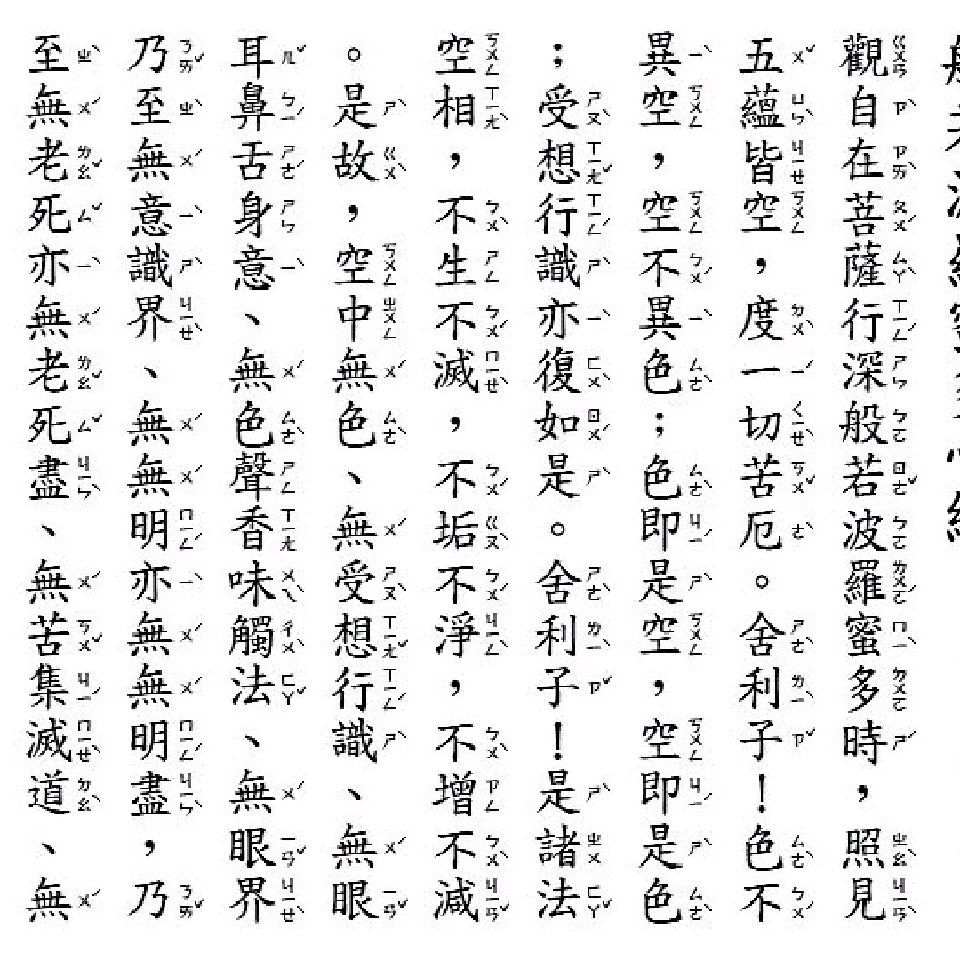 觀自在菩薩行深般若波羅蜜多時，照見
五蘊皆空，度一切苦厄。舍利子！色不
異空，空不異色；色即是空，空即是色
；受想行識亦復如是。舍利子！是諸法
空相，不生不滅，不垢不淨，不增不減
。是故，空中無色、無受想行識、無眼
耳鼻舌身意、無色聲香味觸法、無眼界
乃至無意識界、無無明亦無無明盡，乃
至無老死亦無老死盡、無苦集滅道、無